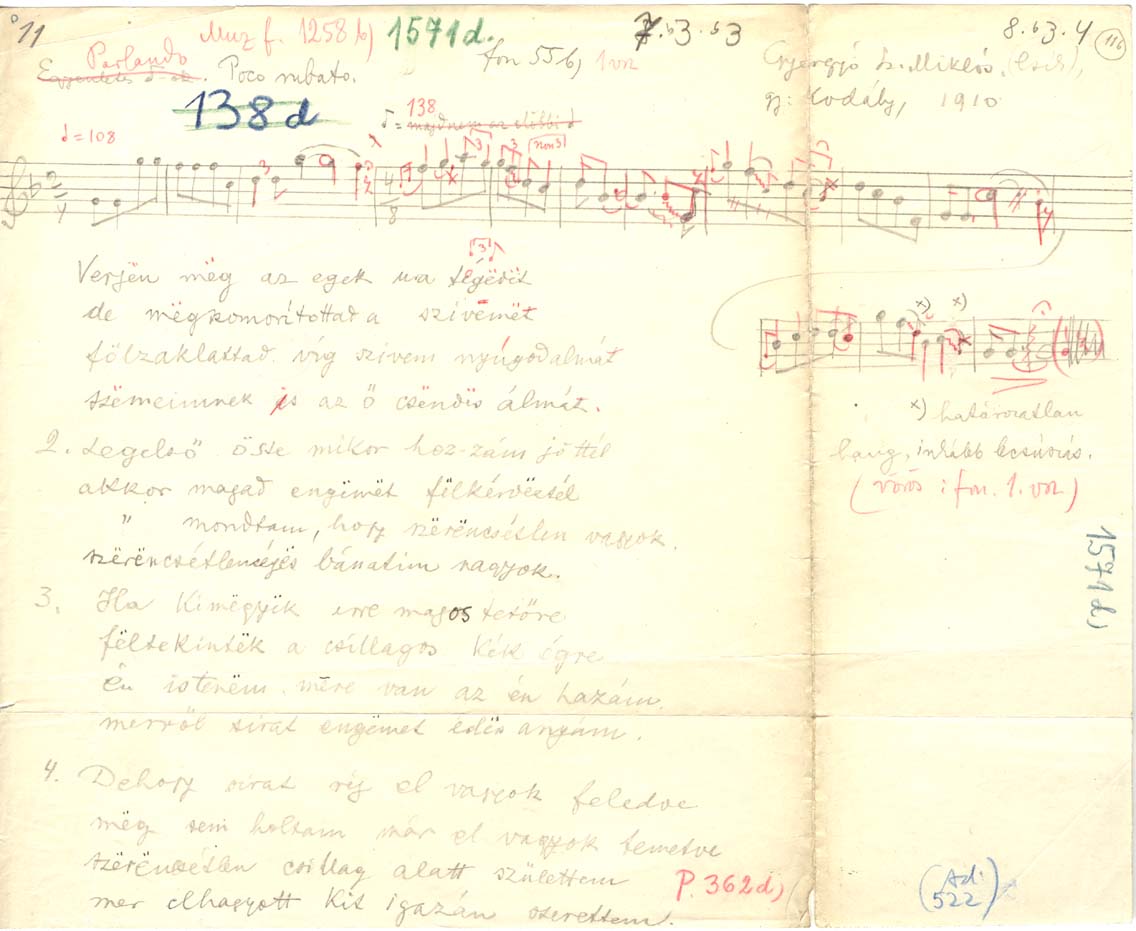 11
Muz f. 1258 b)
1571 d.
7.63.63
8.63.4
116
Parlando
Poco rubato.
fon 55 b, 1 vsz
Gyergyó Sz. Miklós, (Csík),
gy: Kodály, 1910
138 d
= 108
138
= majdnem az előbbi
3
3
3
non 3
4
4
8
3
Verjën mëg az egek ura tégëdët
de mëgkomorítottad a szivëmët
fölzaklattad víg szivem nyúgodalmát
szëmeimnek is az ő csëndës álmát.
x)
x)
x) határozatlan
hang, inkább lecsúszás.
(vörös: fon. 1. vsz)
2. Legelső össe mikor hoz-zám jöttél
akkor magad engëmët fëlkérdëztél
" mondtam, hogy szërëncsétlen vagyok
szërëncsétlen és bánatim nagyok.
1571 d)
3. Ha kimëgyëk erre magos tetőre
fëltekintëk a csillagos kék égre
én istenëm mére van az én hazám
merről sirat engëmet édës anyám.
4. Dehogy sirat rég el vagyok feledve
még sem holtam már el vagyok temetve
szërëncsétlen csillag alatt születtem
mer elhagyott kit igazán szerettem.
P. 362 d)
(Ad.
522)